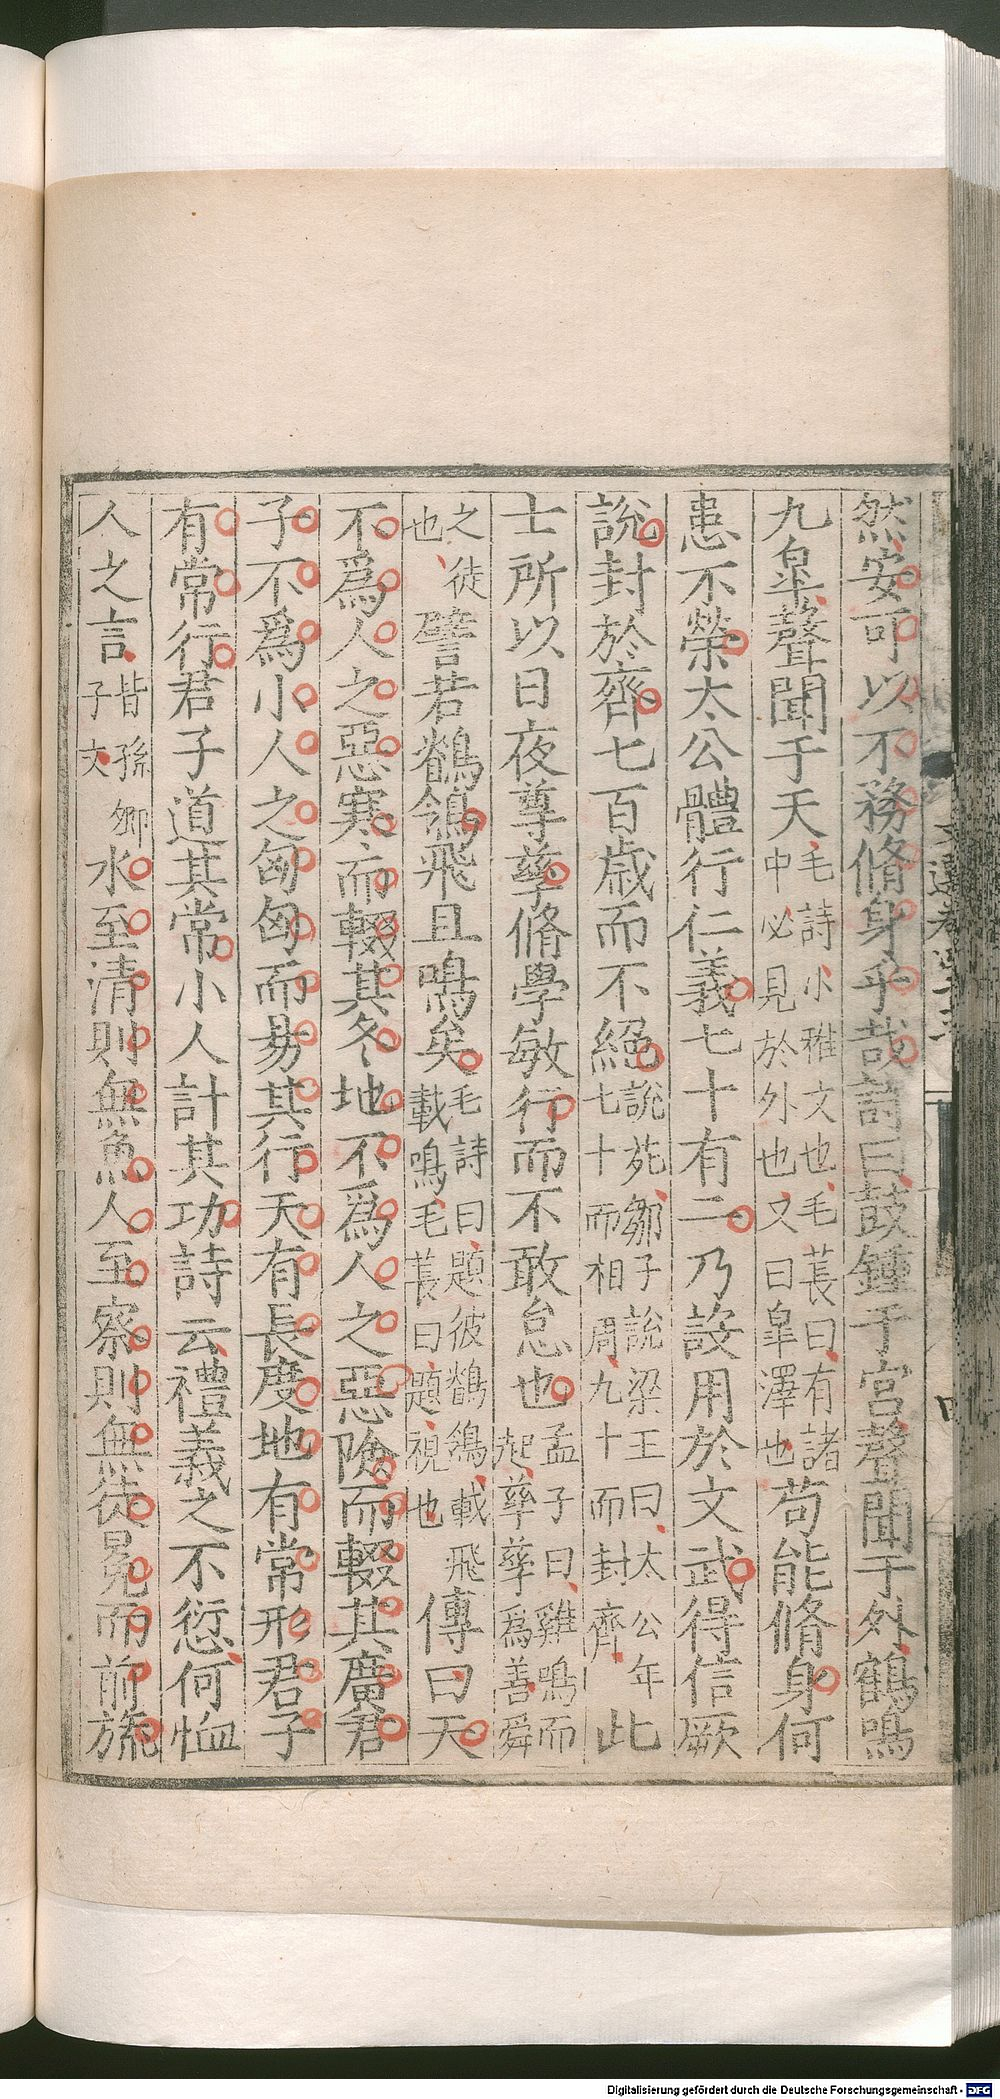 然安可以不務脩身乎哉詩曰鼓鍾于宮聲聞于外鶴鳴
九臯聲聞于天毛詩小雅文也毛萇曰有諸中必見於外也又曰臯澤也苟能脩身何
患不榮太公體行仁義七十有二乃設用於文武得信厥
說封於齊七百歲而不絕說苑鄒子說梁王曰太公年七十而相周九十而封齊此
士所以日夜尊孳脩學敏行而不敢怠也孟子曰雞鳴而起孳孳為善舜
之徒也譬若鶺鴒飛且鳴矣毛詩曰題彼鶺鴒載飛載鳴毛萇曰題視也傳曰天
不爲人之惡寒而輟其冬地不爲人之惡險而輟其廣君
子不爲小人之匈匈而易其行天有長度地有常形君子
有常行君子道其常小人計其功詩云禮義之不愆何恤
人之言皆孫卿子文水至清則無魚人至察則無徒冕而前旒
文選卷
四
Digitalisierung gefördert durch die Deutsche Forschungsgemeinschaft - DFG